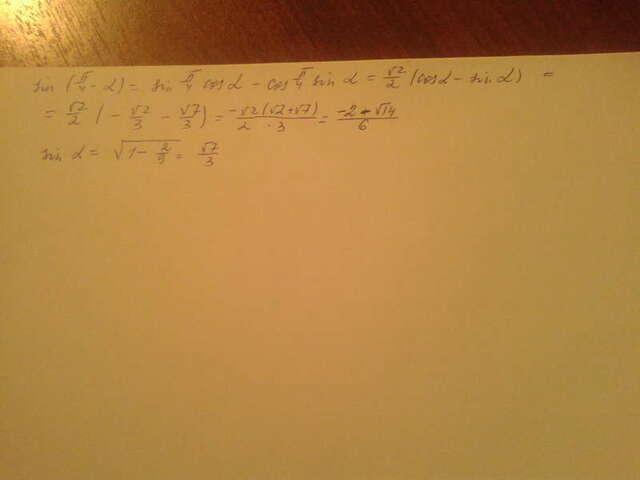 sin (π/4 - α) = sin π/4 cos α - cos π/4 sin α = √2/2 (cos α - sin α) =
= √2/2 (- √2/3 - √7/3) = -√2(√2+√7)/2·3 = -2-√14/6
sin α = √1 - 2/9 = √7/3